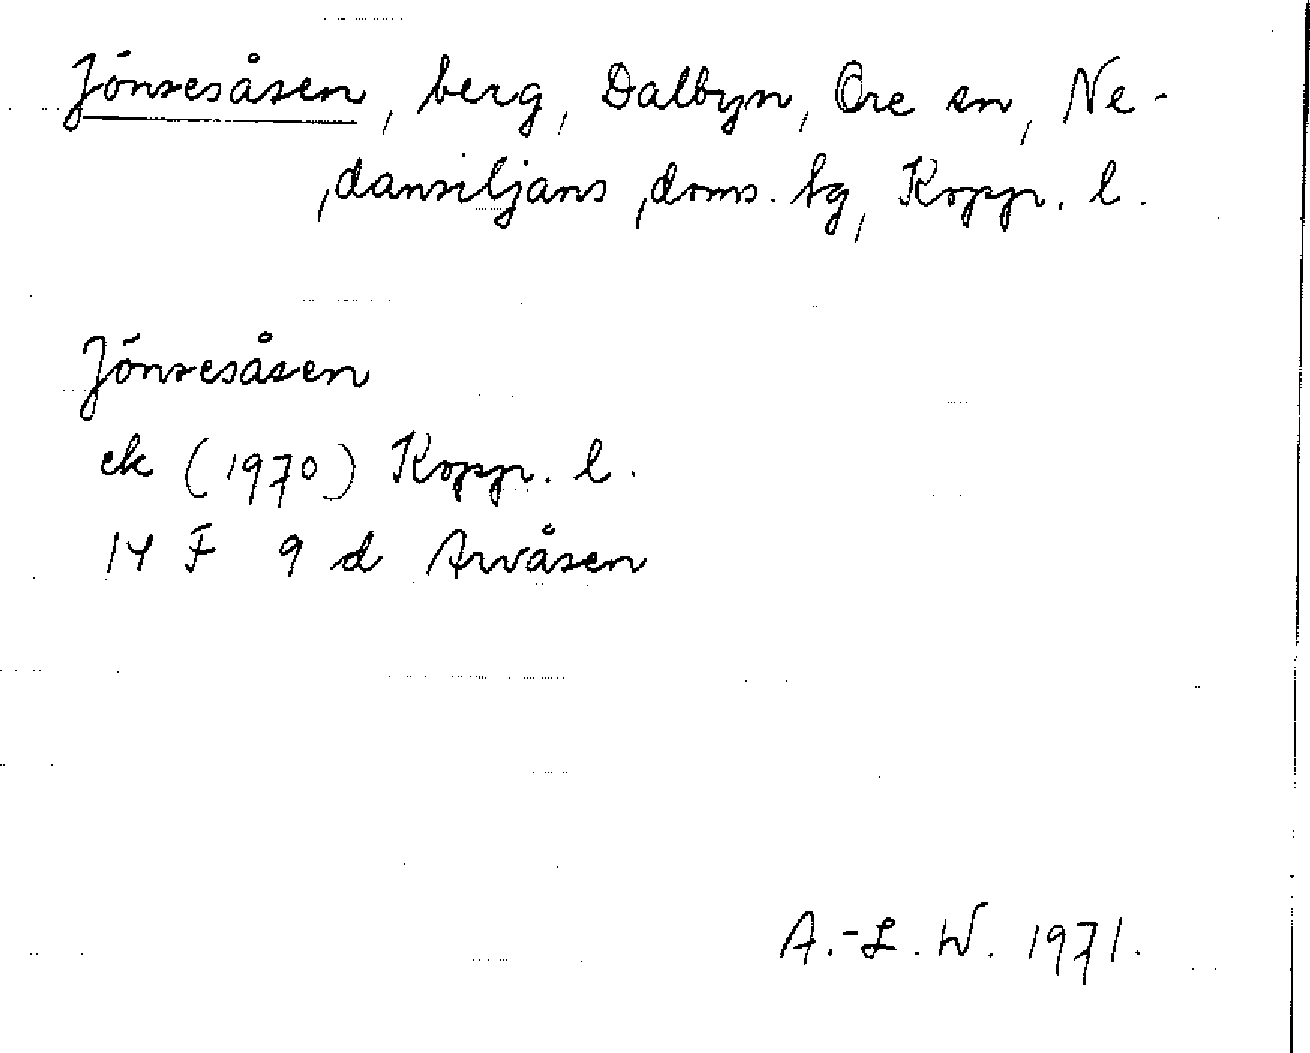 Jönsesåsen, berg, Dalbyn, Ore sn, Ne-
dansiljans doms. hg, Kopp. l.
Jönsesåsen
ek (1970) Kopp. l.
14 F 9 d Arvåsen
A.-L. W. 1971.